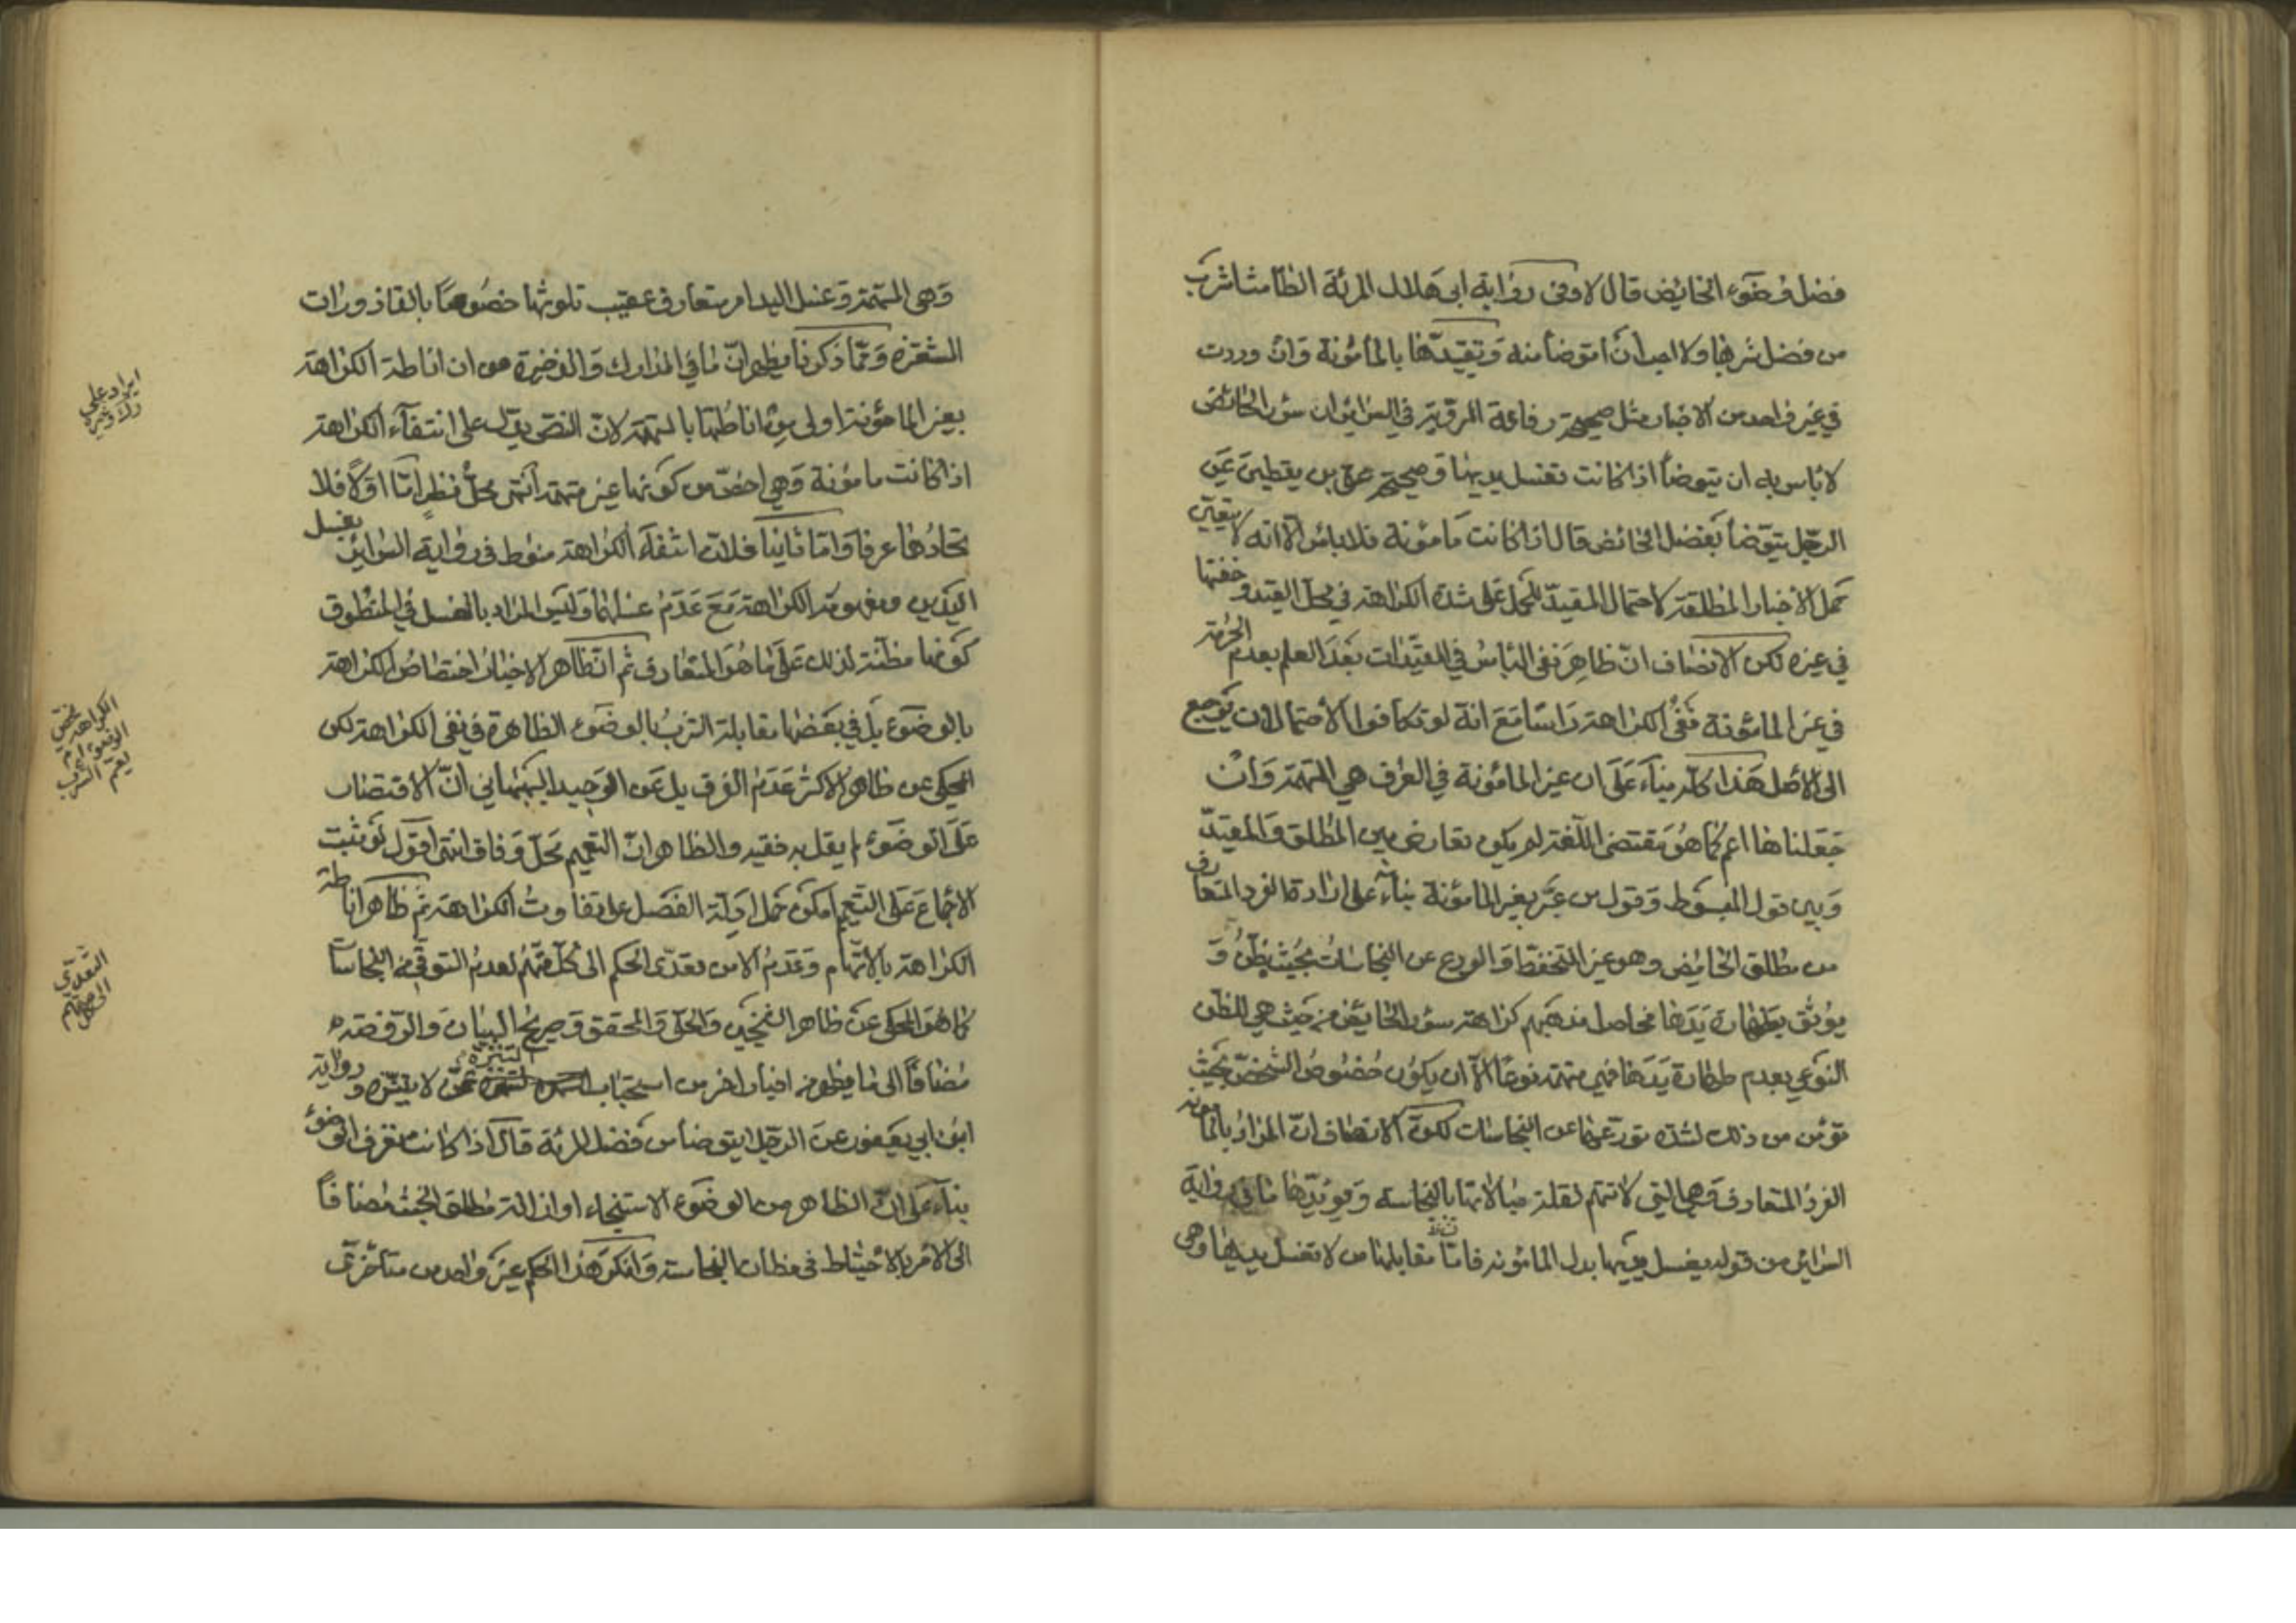 فضل وضوء الحائض قال لا وفى رواية ابى هلال المرئة الطامث اشرب
من فضل شربها ولا احب ان اتوضأ منه وتقييدها بالمأمونة وان وردت
في غير واحد من الاخبار مثل صحيحة رفاعة المروية في السرائر ان سؤر الحائض
لا باس به ان يتوضأ اذا كانت تغسل يديها وصحيحة على بن يقطين عن
الرجل يتوضأ بفضل الحائض قال اذا كانت مأمونة فلا باس الا انه لا يتعين
حمل الاخبار المطلقة لاحتمال المقيد للحمل على شدة الكراهة في محل القيد وخفتها
في غيره لكن الانصاف ان ظاهر نفى الباس في المقيدات بعد العلم بعدم الحرمة
في غير المأمونة نفى الكراهة راسا مع انه لو تكافوا الاحتمالان يرجع
الى الاصل هذا كله بناء على ان غير المأمونة في العرف هي المتهمة وان
جعلناها اعم كما هو مقتضى اللغة لم يكن تعارض بين المطلق والمقيد
وبين قول المبسوط وقول من عبر بغير المأمونة بناء على ارادة الفرد المتعارف
من مطلق الحائض وهو غير المتحفظ والورع عن النجاسات بحيث يظن و
يوثق بطهارة يدها فحاصل مذهبهم كراهة سؤر الحائض من حيث هي للظن
النوعي بعدم طهارة يدها فهي متهمة نوعا الا ان يكون خصوص الشخص بحيث
تؤمن من ذلك لشدة تورعها عن النجاسات لكن الانصاف ان المراد بالمأمونة
الفرد المتعارف وهي التي لا تتهم لقلة مبالاتها بالنجاسة ويؤيدها ما في رواية
السرائر من قوله تغسل يديها بدل المأمونة فان مقابلها من لا تغسل يديها وهى
وهى المتهمة وغسل اليد امر متعارف عقيب تلوثها خصوصا بالقاذورات
المتنفرة ومما ذكرنا يظهر ان ما في المدارك والذخيرة من ان اناطة الكراهة
بغير المامونة اولى من اناطتها بالمتهمة لان النص يدل على انتفاء الكراهة
اذا كانت مامونة وهي اخص من كونها غير متهمة انتهى محل نظر اما اولا فلا
تحادهما عرفا واما ثانيا فلان انتفاء الكراهة منوط في رواية السرائر بغسل
اليدين ومفهومه الكراهة مع عدم غسلهما وليس المراد بالغسل في المنطوق
كونها مظنة لذلك على ما هو المتعارف ثم ان ظاهر الاخبار اختصاص الكراهة
بالوضوء بل في بعضها مقابلة الشرب بالوضوء الظاهرة في نفى الكراهة لكن
المحكى عن ظاهر الاكثر عدم الفرق بل عن الوحيد البهبهاني ان الاقتصار
على الوضوء لم يقل به فقيه والظاهر ان التعميم محل وفاق انتهى اقول لو ثبت
الاجماع على التعميم امكن حمل ادلة الفصل على تفاوت الكراهة ثم ظاهر اناطة
الكراهة بالاتهام وعدم الامن تعدى الحكم الى كل متهم لعدم التوقي من النجاسات
كما هو المحكى عن ظاهر الشيخين والحلى والمحقق وصريح البيان والروضة
مضافا الى ما يظهر من اخبار اخر من استحباب التنزه عمن لا يتنزه ورواية
ابن ابي يعفور عن الرجل ايتوضأ من فضل المرئة قال اذا كانت تعرف الوضوء
بناء على ان الظاهر من الوضوء الاستنجاء او ازالة مطلق الخبث مضافا
الى الامر بالاحتياط في مظان النجاسة وانكر هذا الحكم غير واحد من متأخرى
ايراد على
ك وغيره
الكراهة تختص
الوضوء او
يعم الشرب
التعدى
الى كل متهم